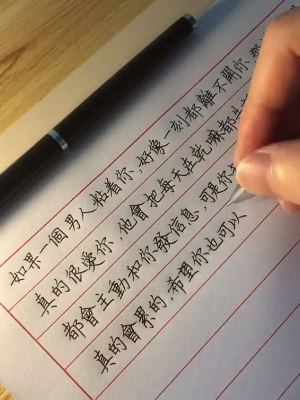 如果一個男人粘着你，好像一刻都離不開你，那
真的很愛你，他會把每天在乾嘛都
都會主動和你發信息，可是你
真的會累的，希望你也可以